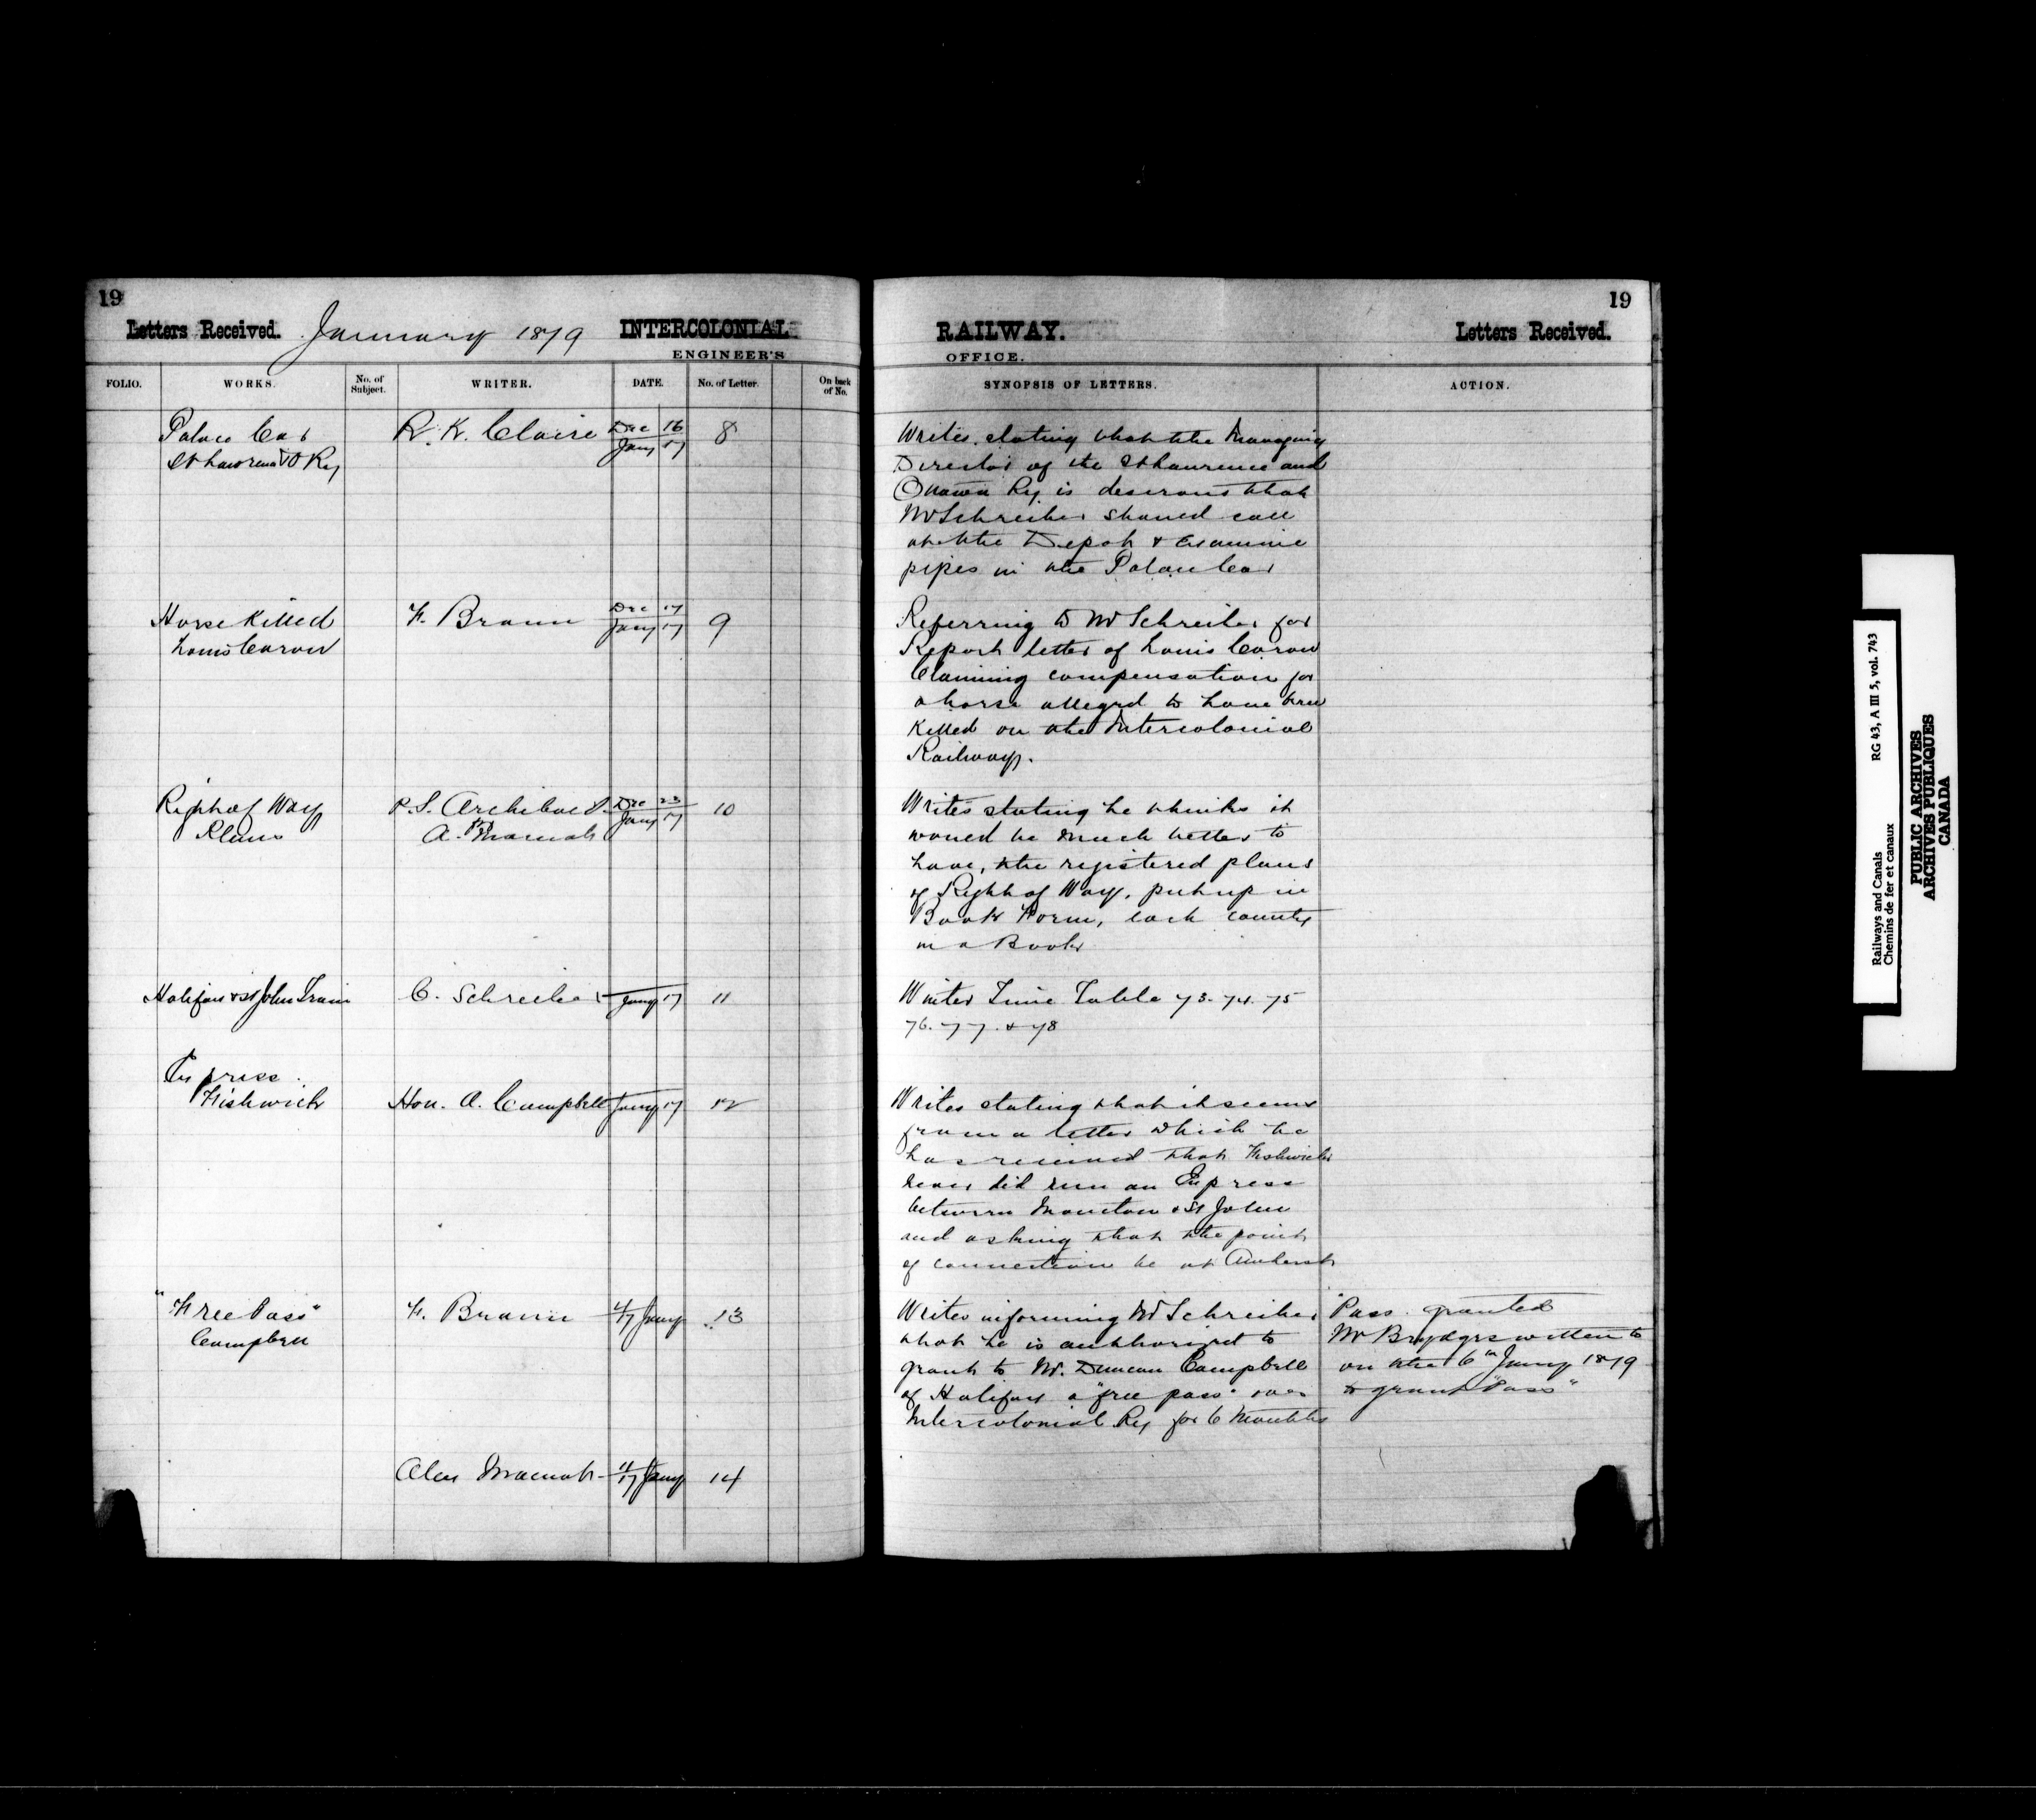 19
Letters Received. January 1879 INTERCOLONIAL
ENGINEER'S
FOLIO. WORKS. No. of Subject. WRITER. DATE. No. of Letter. On back of No.
Palace Car R. K. Claire Dec 16 8
St Lawrence & O Ry Jany 17
Horse Killed F. Braun Dec 17 9
Louis Caron Jany 17
Right of Way P. S. Archibald Dec 23 10
Plans A. Macnab Jany 17
Halifax & St John Train C. Schreiber Jany 17 11
Express
Fishwick Hon. A. Campbell Jany 17 12
"Free Pass" F. Braun 4/17 Jany 13
Campbell
Alex Macnab 11/17 Jany 14
19
RAILWAY. Letters Received.
OFFICE.
SYNOPSIS OF LETTERS. ACTION.
Writes stating that the Managing
Director of the St Laurence and
Ottawa Ry is desirous that
Mr Schreiber should call
at the Depot & examine
pipes in the Palace Car
Referring to Mr Schreiber for
Report letter of Louis Caron
Claiming compensation for
a horse alleged to have been
killed on the Intercolonial
Railway.
Writes stating he thinks it
would be much better to
have, the registered plans
of Right of Way, put up in
Book Form, each county
in a Book
Winter Time Table 73. 74. 75
76. 77. & 78
Writes stating that it seems
from a letter which he
has received that Fishwick
never did run an Express
between Moncton & St John
and asking that the point
of connection be at Amherst
Writes informing Mr Schreiber
that he is authorized to
grant to Mr. Duncan Campbell
of Halifax a "free pass" over
Intercolonial Ry for 6 Months
Pass granted
Mr Brydges written to
on the 6th Jany 1879
to grant "Pass"
Railways and Canals RG 43, A III 5, vol. 743
Chemins de fer et canaux
PUBLIC ARCHIVES
ARCHIVES PUBLIQUES
CANADA